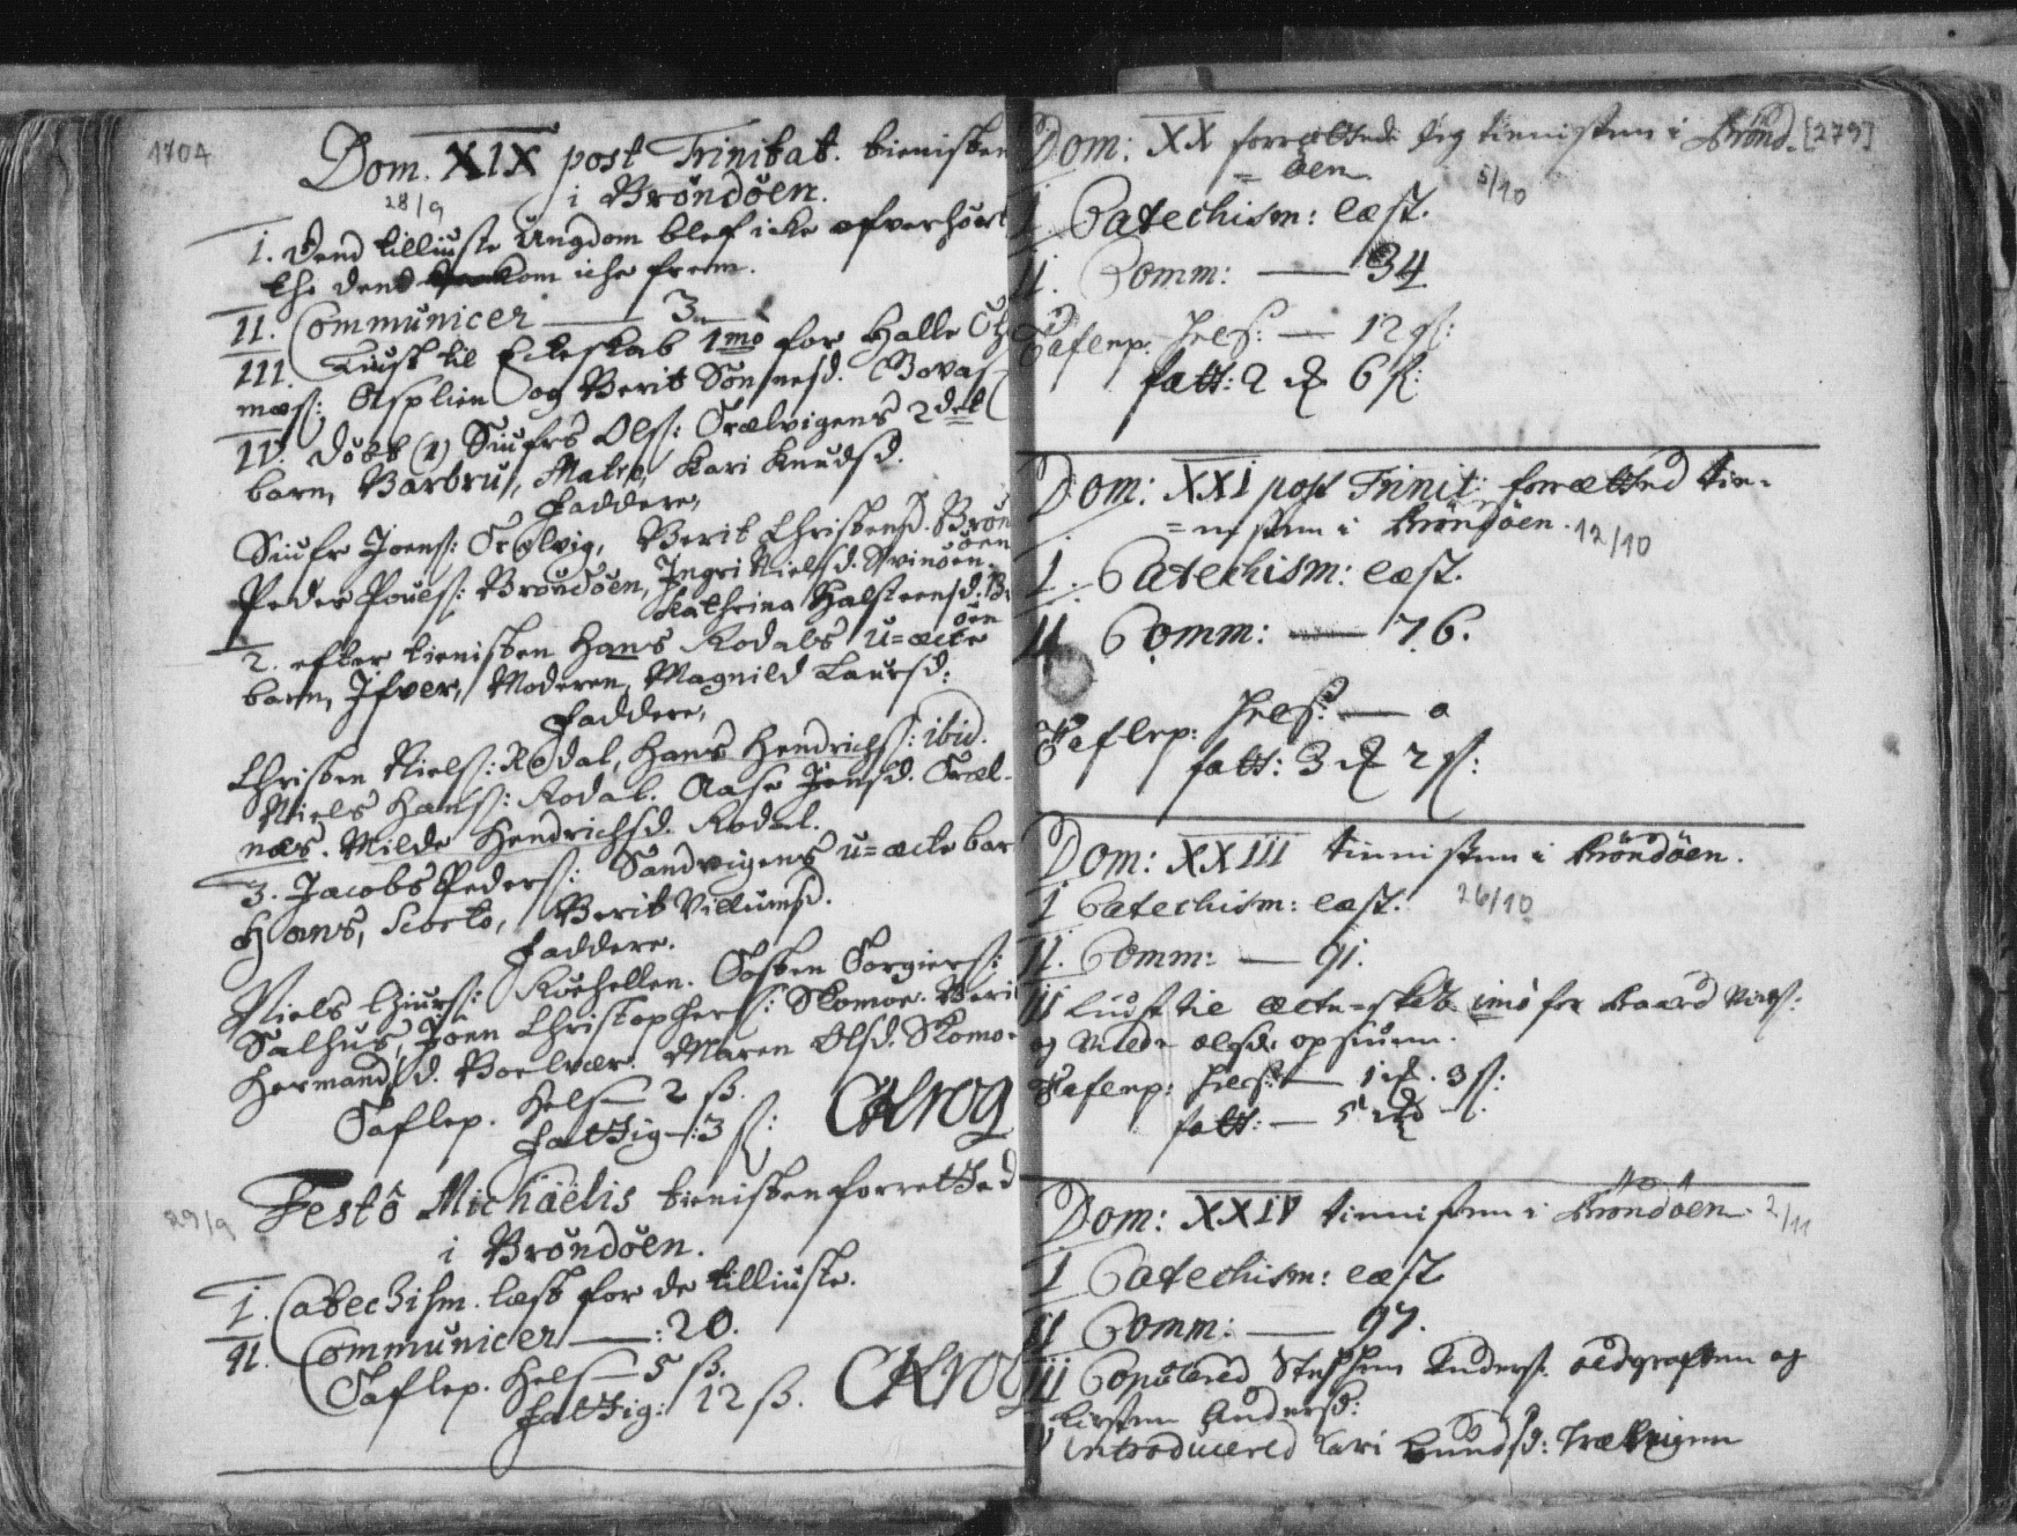 1704
Dom. XIX post Trinitat. tienisten
28/9 i Bröndöen.
I. Dend tilliuste Ungdom blef icke ofverhört
thi dend kom iche frem.
II. Communicer — 3
III. Liust til Ecteskab 1mo for Halle
mæss: Asplien og Berit Sönnesd.
IV. Döbt (1) Siufrs Olss: Trælvigens 2det
barn, Barbru, Mater, Kari Knudsd.
Faddere,
Siufr Joenss: Trælvig, Berit Christensd. Brön
öen
Peder Pouelss: Bröndöen, Ingri Nielsd. Svinöen.
Kathrina Halsteensd. Br
öen
2. efter tienisten Hans Rodals u=æcte
barn, Ifver, Moderen, Magnild Laursd:
Faddere,
Christen Nielss: Rodal, Hans Hendrichss: ibid.
Niels Hanss: Rodal. Aase Jensd. Træl-
næs. Milde Hendrichsd. Rodal.
3. Jacobs Pederss: Sandvigens u=æcte bar
Hans, Berit Villumsd.
Faddere.
Niels Siurss: Kuehellen. Tosten Torgierss:
Salhus, Joen Christophess: Skomoe. Beri
Hermandsd. Boelvær. Maren Olsd. Skomo-
Taflep. Hels — 2 ß.
Fattig —: 3 ß: CKrog
Festô Michaëlis tienisten forretted
29/9
i Bröndöen.
I. Catechism. læst for de tilliuste.
II. Communicer — : 20.
Taflep. Hels — 5 ß.
Fattig: 12 ß. CKrog
Dom: XX forrættede Jeg tienisten i Brönd- [279]
= öen. 5/10
I. Catechism: læst.
II. Comm: — 34
Taflep. Hels: — 12 ß:
fatt: 2 6 ß:
Dom: XXI post Trinit: forrætted tie-
= nisten i Bröndöen. 12/10
I. Catechism: læst.
II Comm: — 76.
Taflep: Hels: — 0
fatt: 3 2 ß:
Dom: XXIII tienisten i Bröndöen.
I Catechism: læst. 26/10
II. Comm: — 91.
III Liust til Ecte=skab 1mo for Baard Nielss:
og Milde Olsd:
Taflep: Hels: — 1 3 ß:
fatt: — 5
Dom: XXIV tienisten i Bröndöen. 2/11
I Catechism: læst
II Comm: — 97.
III Copulered Steffen Anderss. og
Kirsten Andersd:
IV Introducered Kari Knudsd: Trælvigen